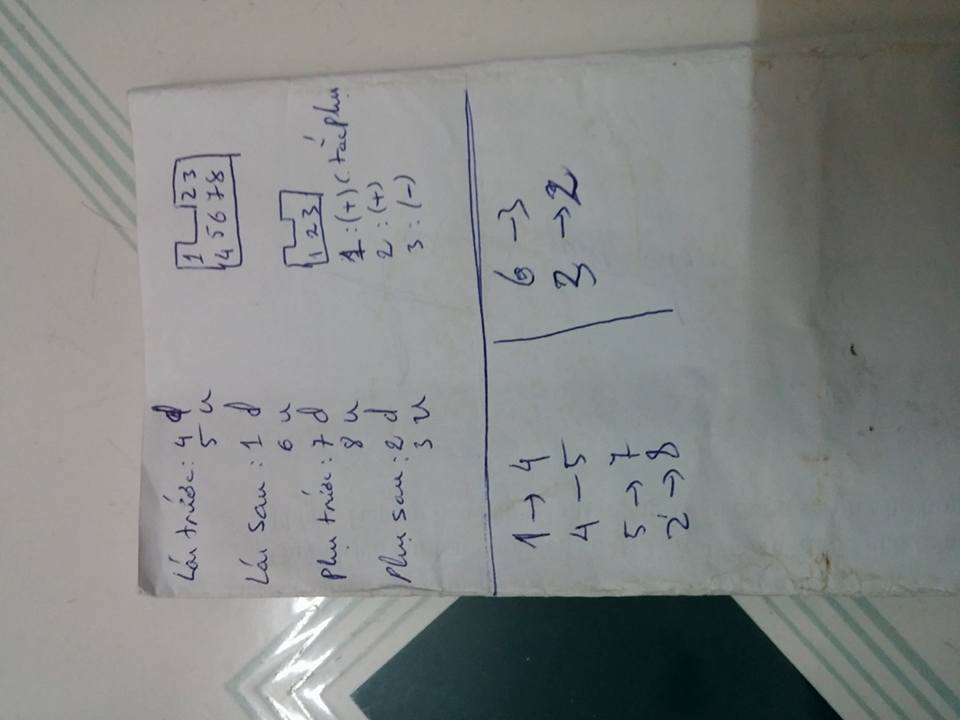 Lái trước: 4 d
5 u
Lái sau: 1 d
6 u
Phụ trước: 7 d
8 u
Phụ sau: 2 d
3 u
1 2 3
4 5 6 7 8
1 2 3
1: (+) (tắc phụ
2: (+)
3: (-)
1 → 4
4 – 5
5 → 7
2 → 8
6 → 3
3 → 2